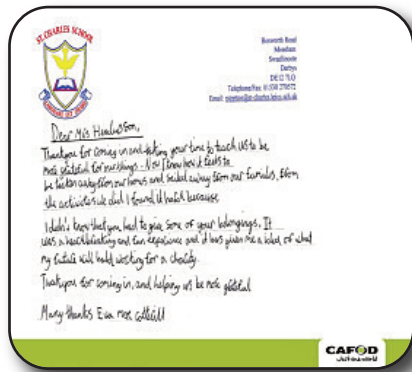 ST. CHARLES SCHOOL
Bosworth Road
Measham
Swadlincote
Derbys
DE12 7LQ
Telephone/Fax: 01530 270572
Email:
Dear Mrs
Thankyou for coming in and taking your time to teach us to be
more grateful for our things. Now I know how it feels to
be taken away from our homes and sailed away from our families, from
the activities we did I found it hard because
I didn't know that you had to give some of your belongings. It
was a heartbreaking and fun experience and it has given me a of what
my future will hold working for a charity.
Thankyou for coming in, and helping us be more grateful
Many thanks Eva
CAFOD
Just one world